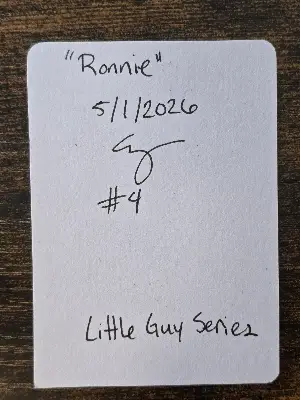 "Ronnie"
5/1/2026
#4
Little Guy Series